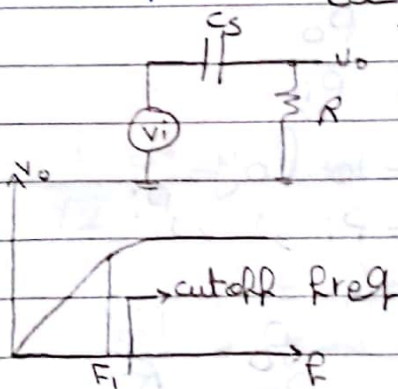 Cs
Vo
R
Vi
Vo
cutoff freq
F1
F